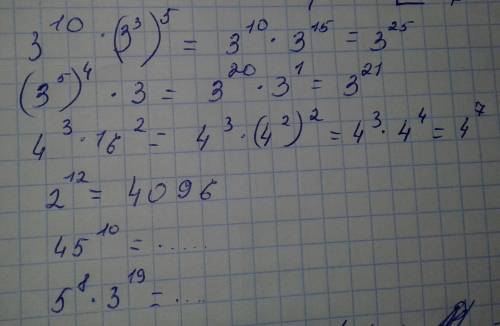 3^10 · (3^3)^5 = 3^10 · 3^15 = 3^25
(3^5)^4 · 3 = 3^20 · 3^1 = 3^21
4^3 · 16^2 = 4^3 · (4^2)^2 = 4^3 · 4^4 = 4^7
2^12 = 4096
45^10 = .....
5^8 · 3^19 = ....